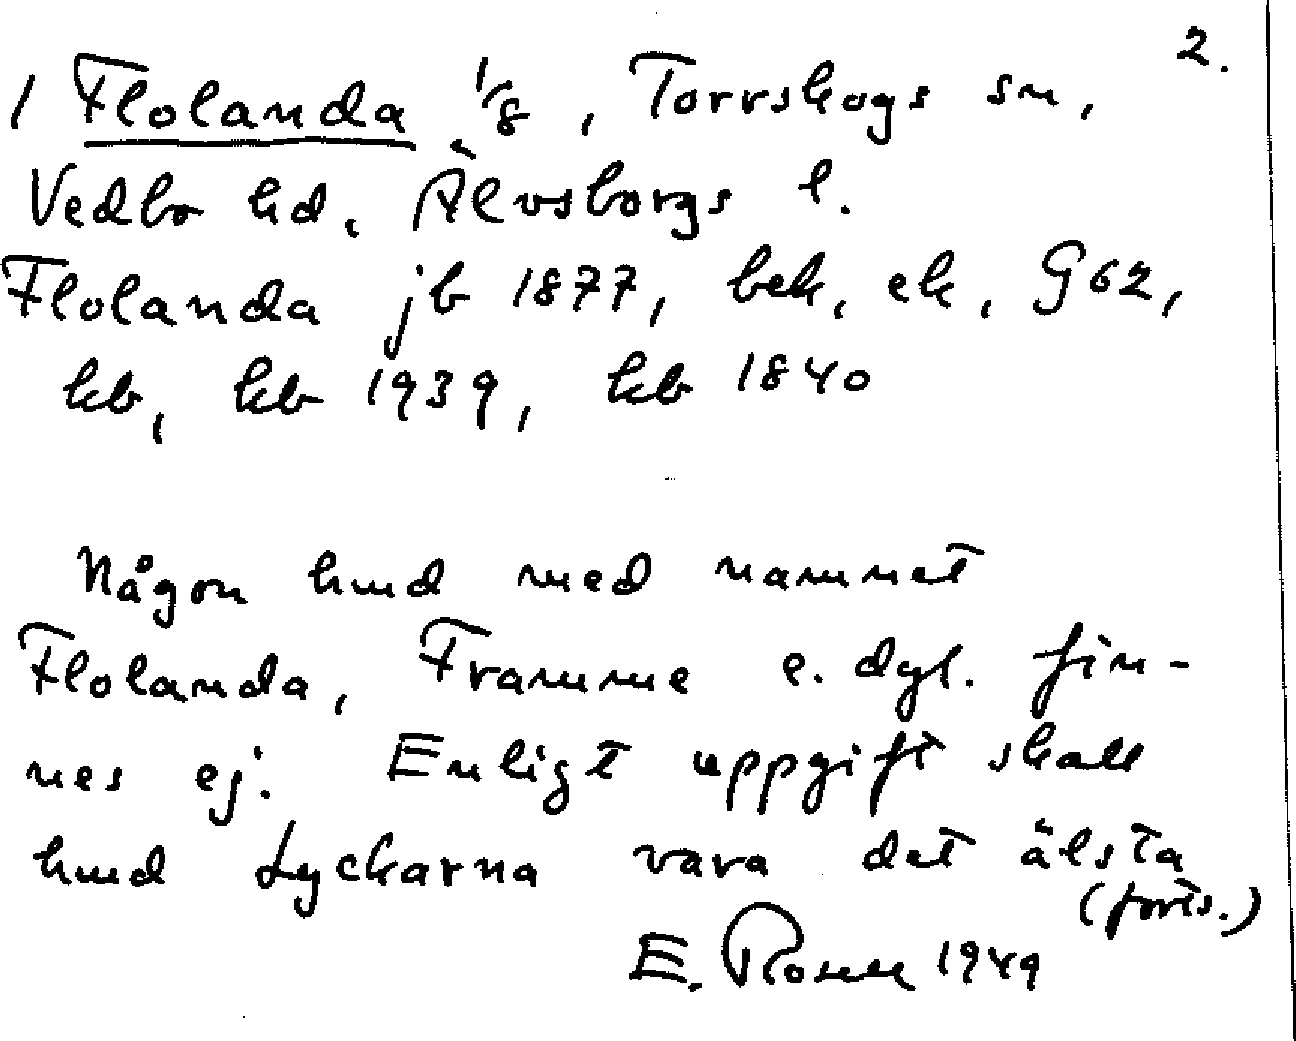 2.
/ Flolanda 1/8, Torrskogs sn,
Vedbo hd, Älvsborgs l.
Flolanda jb 1877, bek, ek, G62,
kb, kb 1939, kb 1840
Någon hmd med namnet
Flolanda, Framme e. dyl. fin-
nes ej. Enligt uppgift skall
hmd Lyckarna vara det älsta
(forts.)
E. Rosell 1949